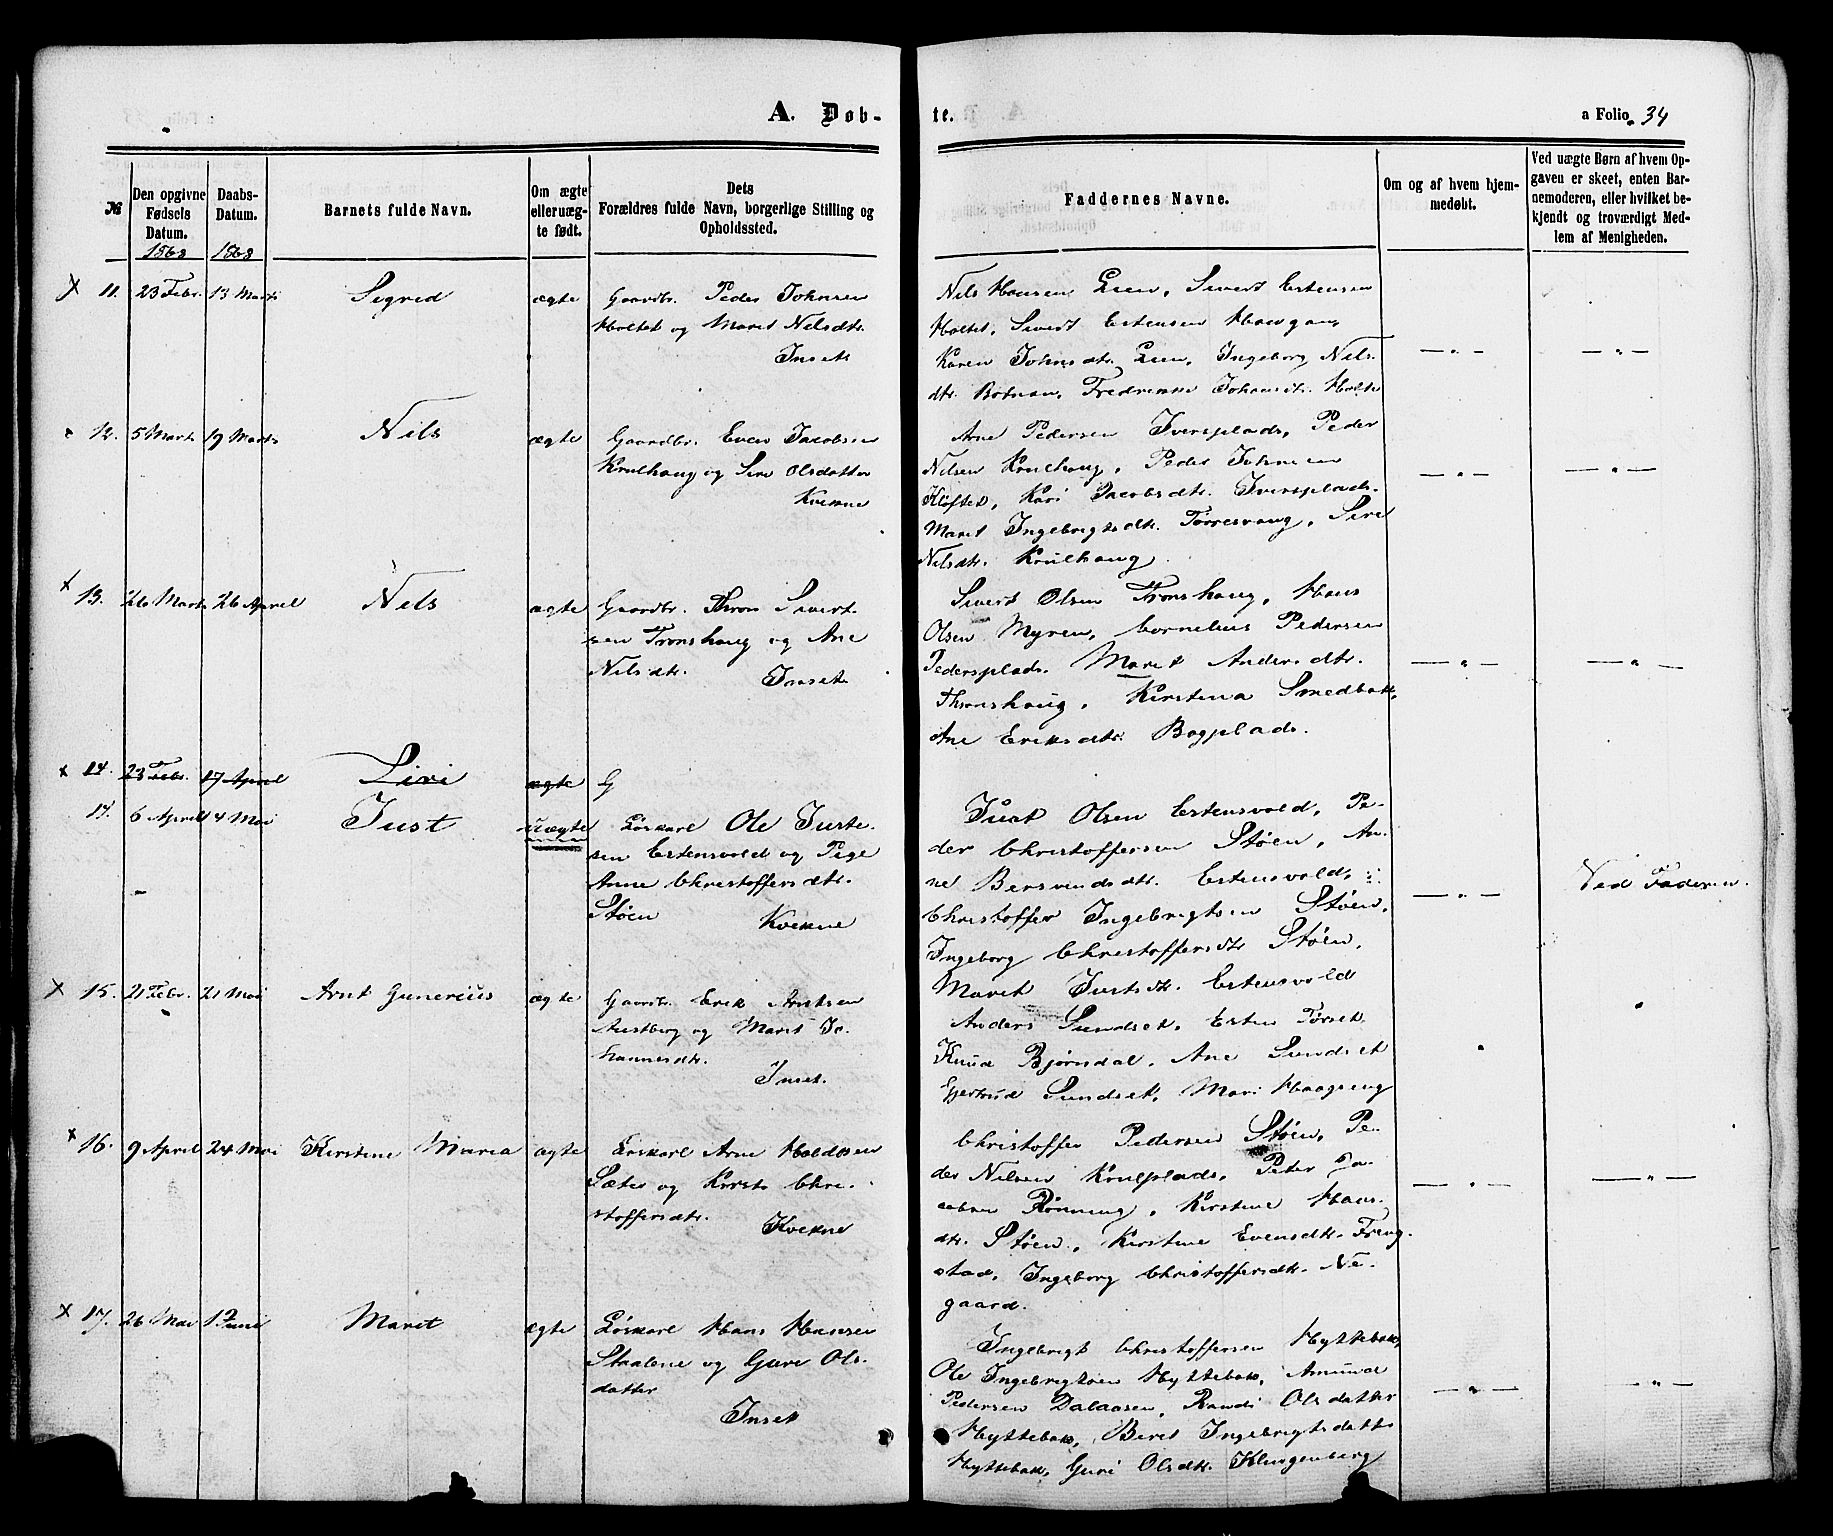 A. Døb-
te.
a Folio 34
№
Den opgivne Fødsels Datum.
1868
Daabs-Datum.
1868
Barnets fulde Navn.
Om ægte eller uæg-te født.
Dets
Forældres fulde Navn, borgerlige Stilling og
Opholdssted.
Faddernes Navne.
Om og af hvem hjem-
medøbt.
Ved uægte Børn af hvem Op-
gaven er skeet, enten Bar-
nemoderen, eller hvilket be-
kjendt og troværdigt Med-
lem af Menigheden.
11. 23 Febr. 13 Marts Sigrid ægte Gaardbr. Peder Johnsen
Holtet og Marit Nilsdtr.
Inset
Nils Hansen Lien, Sivert Estensen
Holtet, Sivert Estensen Haugan,
Karen Johnsdtr. Lien, Ingeborg Nils
dtr. Botnan, Fredrikke Johansdtr. Holte
12. 5 Marts 19 Marts Nils ægte Gaardbr. Even Jacobsen
Krulhaug og Siri Olsdatter
Kvikne
Arne Pedersen Iversplads, Peder
Nilsen Krulhaug, Peder Johnsen
Kløftet, Kari Jacobsdtr. Iversplads.
Maret Ingebrigtsdtr. Torresvang, Siri
Nilsdtr. Krulhaug.
13. 26 Marts 26 April Nils ægte Gaardbr. Thron Sivert
sen Tronshaug og Ane
Nilsdtr. Inset
Sivert Olsen Tronshaug, Hans
Olsen Myren, Cornelius Pedersen
Pedersplads. Maret Andersdtr.
Thronshaug, Kirstina Smedbak,
Ane Eriksdtr. Bogplads.
14. 23 Febr. 17 April Livi ægte G
14. 6 April 4 Mai Just uægte Løskarl Ole Juste-
sen Estensvold og Pige
Anne Christoffersdtr.
Støen Kvikne
Just Olsen Estensvold, Pe-
der Christoffersen Støen, An-
ne Bersvendsdtr. Estensvold,
Christoffer Ingebrigtsen Støen,
Ingeborg Christoffersdtr Støen,
Maret Justsdtr. Estensvold
Ved Faderen.
15. 21 Febr. 21 Mai Arnt Gunerius ægte Gaardbr. Erik Arntsen
Austberg og Marit Jo-
hannesdtr.
Inset.
Anders Sundset, Esten Torset,
Knud Bjørndal, Ane Sundset
Gjertrud Sundset, Mari Haagseng
16. 9 April 24 Mai Kirstine Maria ægte Løskarl Arne Haldosen
Sæter og Kirsti Chri-
stoffersdtr.
Kvikne
Christoffer Pedersen Støen, Pe-
der Nilsen Krulplads, Peter Ja-
cobsen Rønning, Kirstine Hans
dtr. Støen, Kirstine Evensdtr. Freng-
stad, Ingeborg Christoffersdtr. Ne-
gaard.
17. 26 Mai 12 Juni Marit ægte Løskarl Hans Hansen
Staalene og Guri Ols-
datter
Inset
Ingebrigt Christoffersen Hyttebak,
Ole Ingebrigtsen Hyttebak, Amund
Pedersen Dalaasen, Randi Olsdatter
Hyttebak, Berit Ingebrigtsdatter
Hyttebak, Guri Olsdtr. Klingenberg